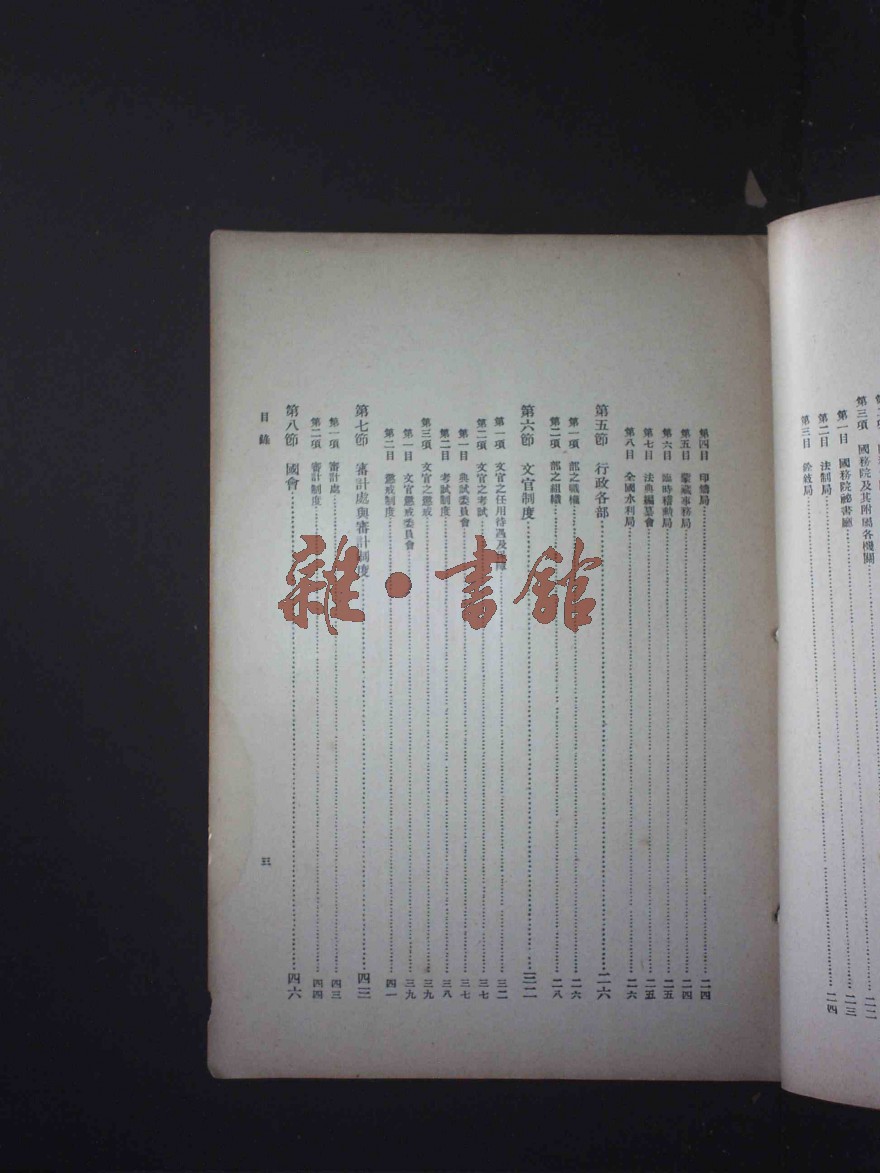 第三項 國務院及其附屬各機關……二二
第一目 國務院祕書廳……二三
第二目 法制局……二四
第三目 銓敘局
第四目 印鑄局……二四
第五目 蒙藏事務局……二四
第六目 臨時稽勳局……二五
第七目 法典編纂會……二五
第八目 全國水利局……二六
第五節 行政各部……二六
第一項 部之職權……二六
第二項 部之組織……二八
第六節 文官制度……三二
第一項 文官之任用待遇及……三二
第二項 文官之考試……三七
第一目 典試委員會……三七
第二目 考試制度……三八
第三項 文官之懲戒……三九
第一目 文官懲戒委員會……三九
第二目 懲戒制度……四一
第七節 審計處與審計制度……四三
第一項 審計處……四三
第二項 審計制度……四四
第八節 國會……四六
目錄
三
雜·書館